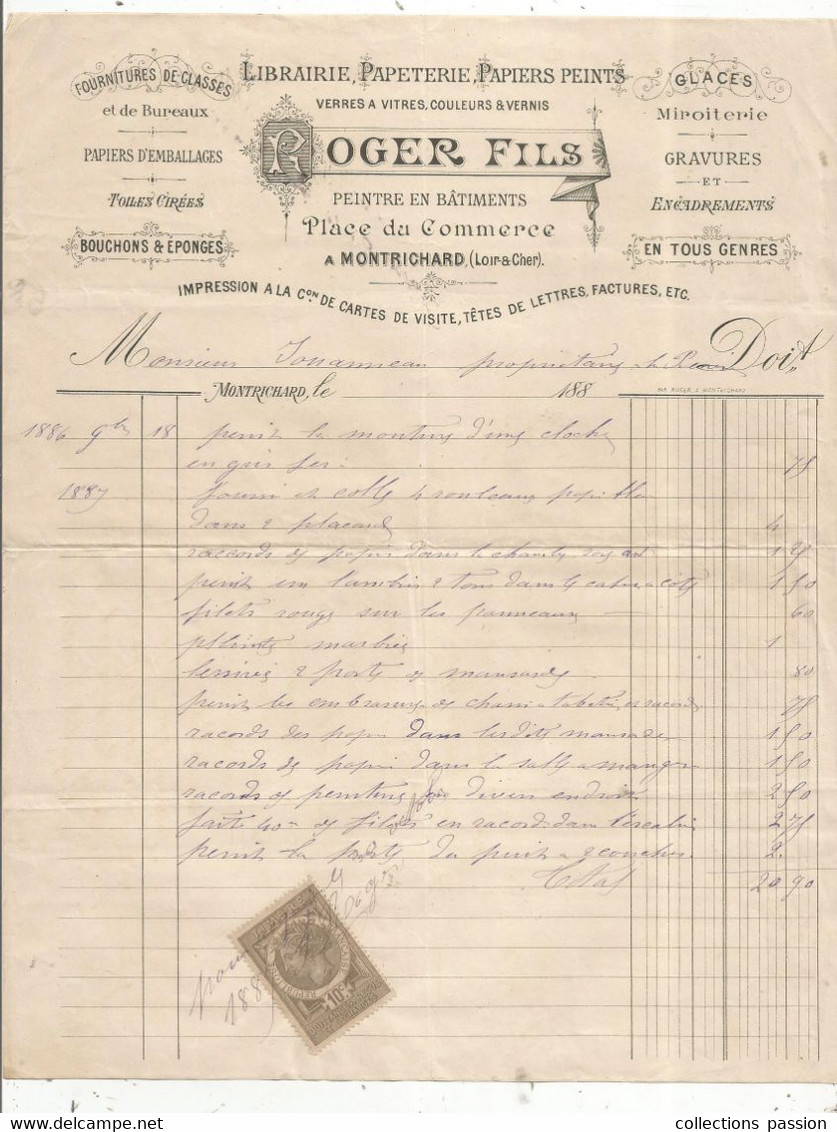 FOURNITURES DE CLASSES
et de Bureaux
PAPIERS D'EMBALLAGES
TOILES CIRÉES
BOUCHONS & ÉPONGES
LIBRAIRIE, PAPETERIE, PAPIERS PEINTS
VERRES A VITRES, COULEURS & VERNIS
ROGER FILS
PEINTRE EN BÂTIMENTS
Place du Commerce
A MONTRICHARD, (Loir-&-Cher).
GLACES
Miroiterie
GRAVURES
ET
ENCADREMENTS
EN TOUS GENRES
IMPRESSION A LA Con DE CARTES DE VISITE, TÊTES DE LETTRES, FACTURES, ETC.
Monsieur Jouanneau propriétaire Doit
MONTRICHARD, le 188
1886 9bre 18 peint la monture d'une cloche
en gris fer. 75
1887 fourni et collé 4 rouleaux papier
dans 2 placard 4
raccords de papier dans la chambre 1 25
peint un lambris 2 tons dans le cabinet a côté 1 50
filets rouge sur les panneaux 60
plinthe marbrée 1
lessivé 2 porte de mansardes 80
peint les embrasures de chassis a tabatière et raccords 75
racords des papier dans les dite mansardes 1 50
racords de papier dans la salle a manger 1 50
racords de peinture divers endroits 2 50
faite 40m de filets en racords dans l'escalier 2 75
peint la porte du puit a 2 couches. 2.
Total 20 90
10c